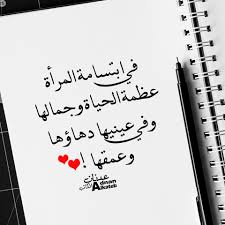 في ابتسامة المرأة
عظمة الحياة وجمالها
وفي عينيها دهاؤها
وعمقها !
عدنان الكاتب
Adnan
Alkateb